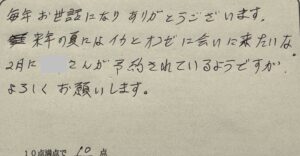 毎年お世話になり ありがとうございます。
来年の夏にはイカとオンゼに会いに来たいな
2月に さんが予約されているようですが
よろしくお願いします。
10点満点で 10 点